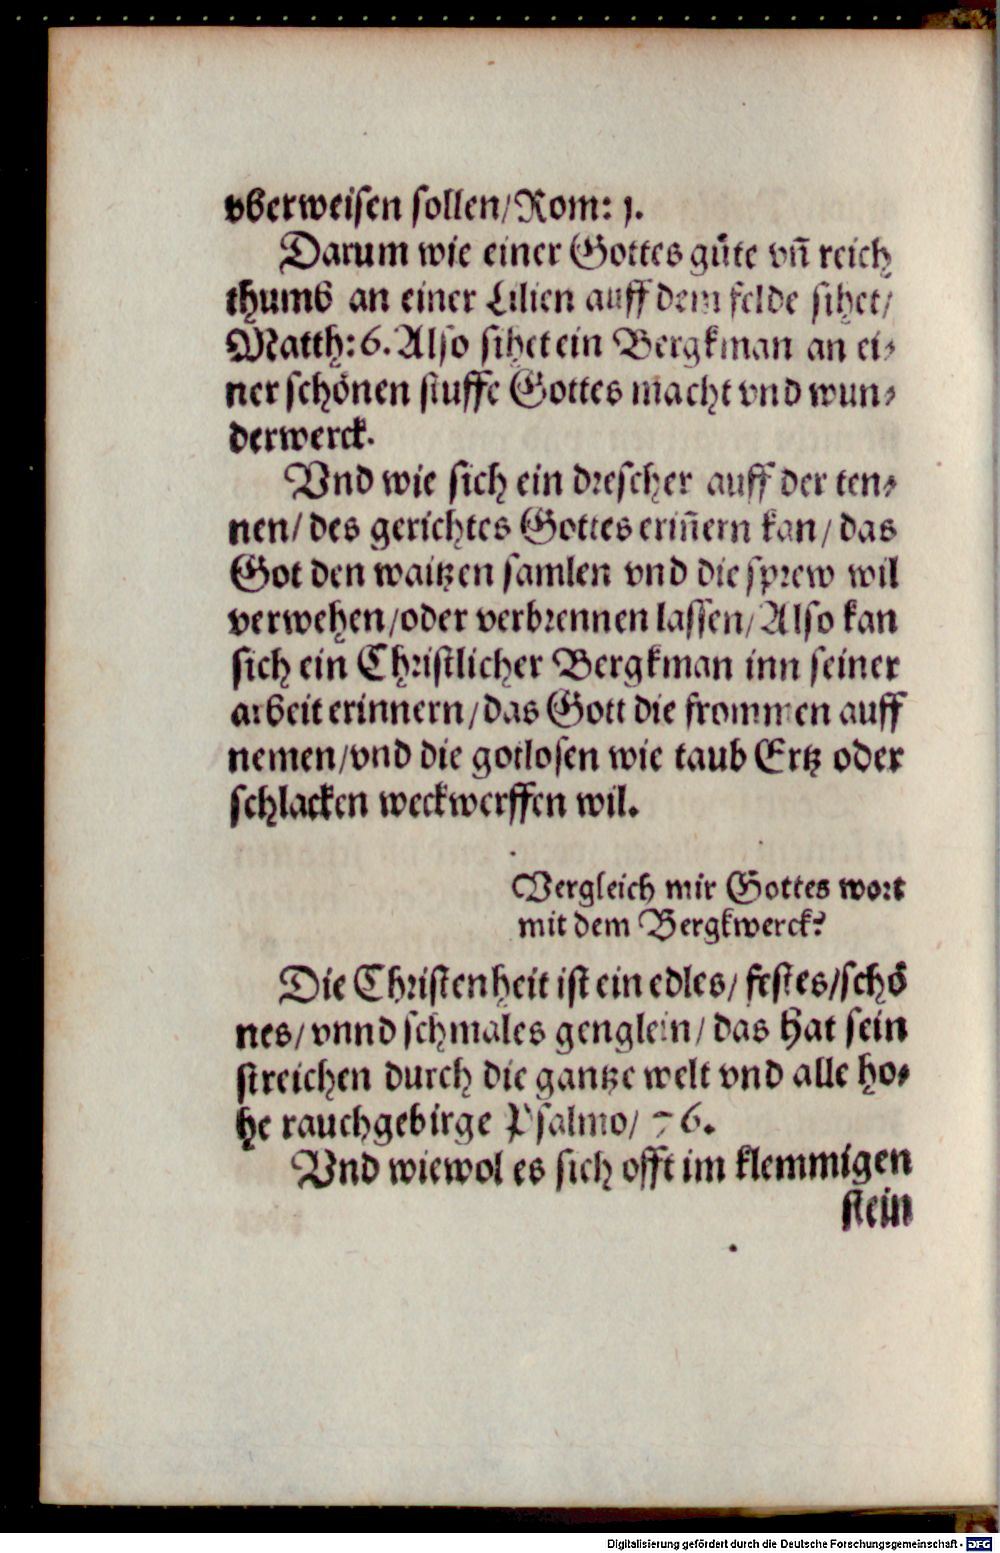 vberweisen sollen/Rom: 1.
Darum wie einer Gottes güte vñ reich
thumb an einer Lilien auff dem felde sihet/
Matth: 6. Also sihet ein Bergkman an ei⸗
ner schönen stuffe Gottes macht vnd wun⸗
derwerck.
Vnd wie sich ein drescher auff der ten⸗
nen/ des gerichtes Gottes eriñern kan/ das
Got den waitzen samlen vnd die sprew wil
verwehen/oder verbrennen lassen/Also kan
sich ein Christlicher Bergkman inn seiner
arbeit erinnern/das Gott die frommen auff
nemen/vnd die gotlosen wie taub Ertz oder
schlacken weckwerffen wil.
Vergleich mir Gottes wort
mit dem Bergkwerck?
Die Christenheit ist ein edles/ festes/schö
nes/ vnnd schmales genglein/ das hat sein
streichen durch die gantze welt vnd alle ho⸗
he rauchgebirge Psalmo/ 76.
Vnd wiewol es sich offt im klemmigen
stein
Digitalisierung gefördert durch die Deutsche Forschungsgemeinschaft - DFG